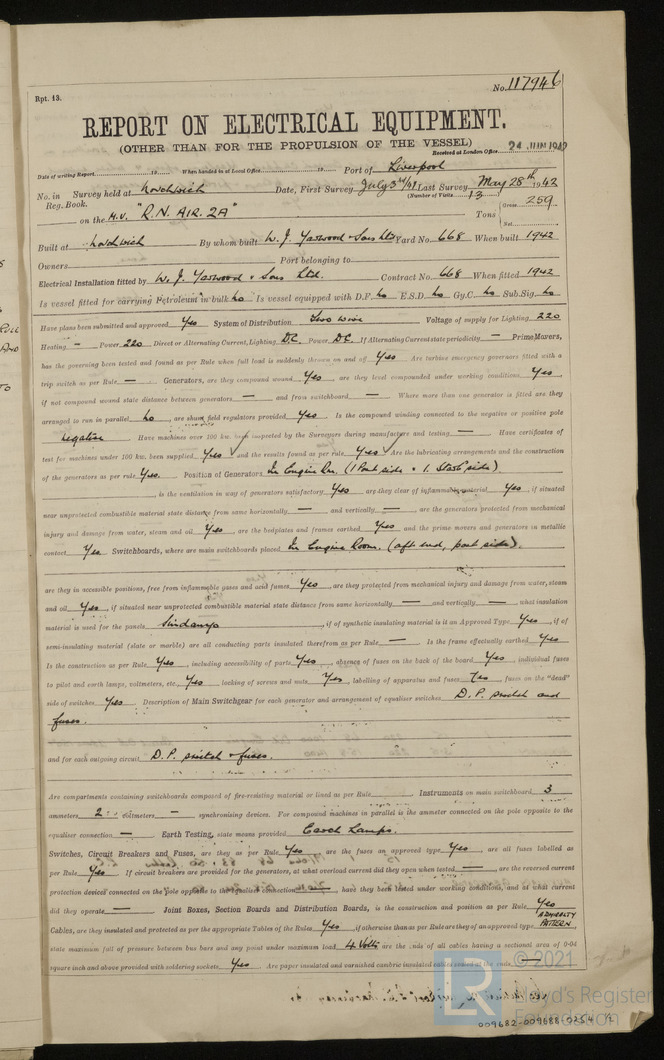 No. 117946
Rpt. 13.
REPORT ON ELECTRICAL EQUIPMENT.
(OTHER THAN FOR THE PROPULSION OF THE VESSEL)
Received at London Office 24 JUN 1942
Date of writing Report 19 When handed in at Local Office 19 Port of Liverpool
No. in Survey held at Northwich Date, First Survey July 3rd/41 Last Survey May 28th 1942
Reg. Book. (Number of Visits 13
on the M.V. "R.N. AIR. 2A" Tons Gross 259 Net
Built at Northwich By whom built W. J. Yarwood & Sons Ltd Yard No. 668 When built 1942
Owners Port belonging to
Electrical Installation fitted by W. J. Yarwood & Sons Ltd. Contract No. 668 When fitted 1942
Is vessel fitted for carrying Petroleum in bulk No Is vessel equipped with D.F. No E.S.D. No Gy.C. No Sub.Sig. No
Have plans been submitted and approved Yes System of Distribution Two wire Voltage of supply for Lighting 220
Heating - Power 220 Direct or Alternating Current, Lighting D.C. Power D.C. If Alternating Current state periodicity - Prime Movers,
has the governing been tested and found as per Rule when full load is suddenly thrown on and off Yes Are turbine emergency governors fitted with a
trip switch as per Rule - Generators, are they compound wound Yes, are they level compounded under working conditions Yes,
if not compound wound state distance between generators - and from switchboard - Where more than one generator is fitted are they
arranged to run in parallel No, are shunt field regulators provided Yes Is the compound winding connected to the negative or positive pole
Negative Have machines over 100 kw. been inspected by the Surveyors during manufacture and testing - Have certificates of
test for machines under 100 kw. been supplied Yes and the results found as per rule Yes Are the lubricating arrangements and the construction
of the generators as per rule Yes. Position of Generators In Engine Rm. (1 Port side & 1. Starbd side)
, is the ventilation in way of generators satisfactory Yes, are they clear of inflammable material Yes, if situated
near unprotected combustible material state distance from same horizontally - and vertically -, are the generators protected from mechanical
injury and damage from water, steam and oil Yes, are the bedplates and frames earthed Yes and the prime movers and generators in metallic
contact Yes Switchboards, where are main switchboards placed In Engine Room. (aft end, port side).
are they in accessible positions, free from inflammable gases and acid fumes Yes, are they protected from mechanical injury and damage from water, steam
and oil Yes, if situated near unprotected combustible material state distance from same horizontally - and vertically -, what insulation
material is used for the panels Sindanyo, if of synthetic insulating material is it an Approved Type Yes, if of
semi-insulating material (slate or marble) are all conducting parts insulated therefrom as per Rule - Is the frame effectually earthed Yes
Is the construction as per Rule Yes, including accessibility of parts Yes, absence of fuses on the back of the board Yes, individual fuses
to pilot and earth lamps, voltmeters, etc. Yes locking of screws and nuts Yes, labelling of apparatus and fuses Yes, fuses on the "dead"
side of switches Yes Description of Main Switchgear for each generator and arrangement of equaliser switches D.P. switch and
fuses.
and for each outgoing circuit D.P. switch & fuses.
Are compartments containing switchboards composed of fire-resisting material or lined as per Rule Instruments on main switchboard 3
ammeters 2 voltmeters - synchronising devices. For compound machines in parallel is the ammeter connected on the pole opposite to the
equaliser connection - Earth Testing, state means provided Earth Lamps.
Switches, Circuit Breakers and Fuses, are they as per Rule Yes, are the fuses an approved type Yes, are all fuses labelled as
per Rule Yes. If circuit breakers are provided for the generators, at what overload current did they open when tested -, are the reversed current
protection devices connected on the pole opposite to the equaliser connection -, have they been tested under working conditions, and at what current
did they operate - Joint Boxes, Section Boards and Distribution Boards, is the construction and position as per Rule Yes
Cables, are they insulated and protected as per the appropriate Tables of the Rules Yes, if otherwise than as per Rule are they of an approved type ADMIRALTY PATTERN,
state maximum fall of pressure between bus bars and any point under maximum load 4 Volts are the ends of all cables having a sectional area of 0·04
square inch and above provided with soldering sockets Yes. Are paper insulated and varnished cambric insulated cables sealed at the ends -
LR
© 2021
Lloyd's Register
Foundation
009682-009688-0254 1/2